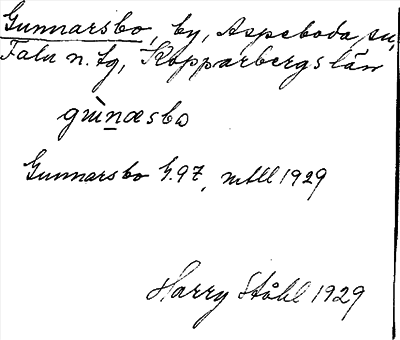 Gunnarsbo, by, Aspeboda sn,
Falu n. tg, Kopparbergs län
gùnæsbo
Gunnarsbo G.97, mtll 1929
Harry Ståhl 1929